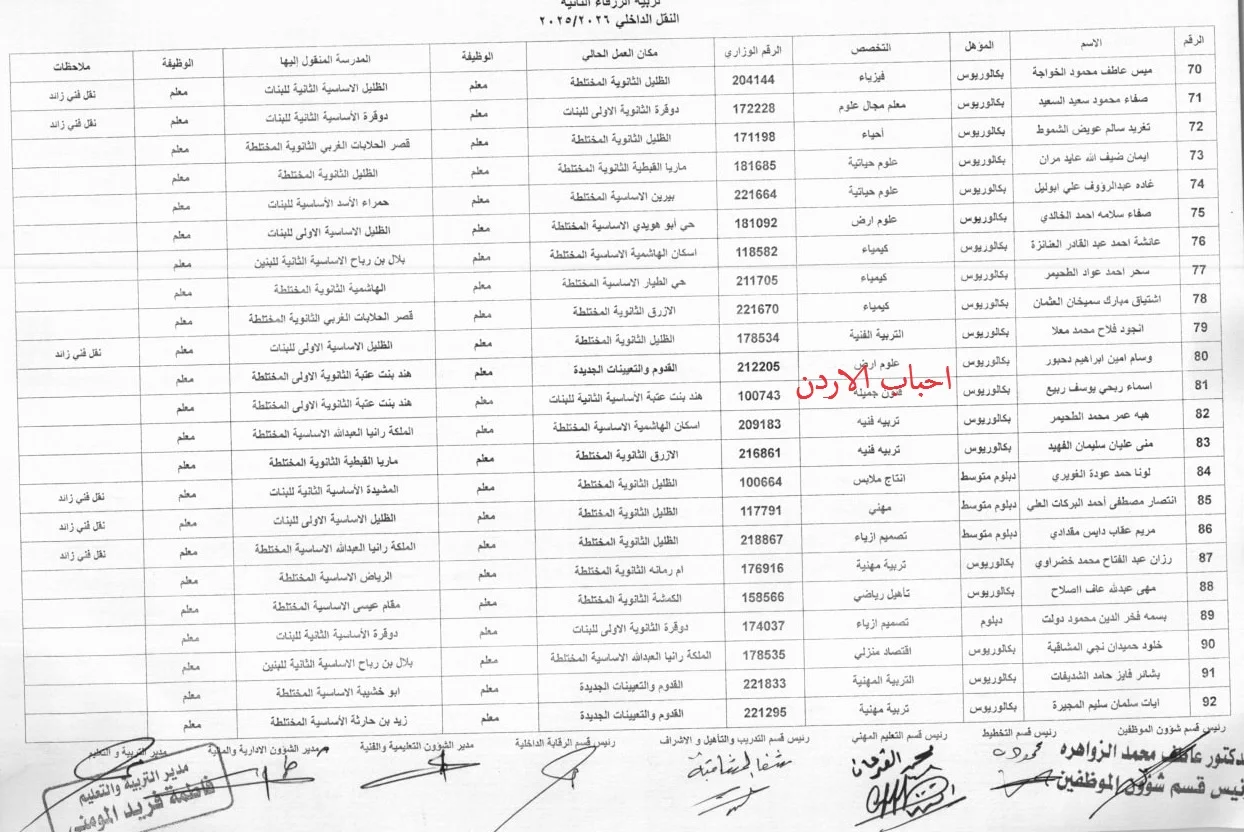 تربية الزرقاء الثانية
النقل الداخلي ٢٠٢٥/٢٠٢٦
الرقم الاسم المؤهل التخصص الرقم الوزاري مكان العمل الحالي الوظيفة المدرسة المنقول إليها الوظيفة ملاحظات
70 ميس عاطف محمود الخواجة بكالوريوس فيزياء 204144 الظليل الثانوية المختلطة معلم الظليل الاساسية الثانية للبنات معلم نقل فني زائد
71 صفاء محمود سعيد السعيد بكالوريوس معلم مجال علوم 172228 دوقرة الثانوية الاولى للبنات معلم دوقرة الأساسية الثانية للبنات معلم نقل فني زائد
72 تغريد سالم عويض الشموط بكالوريوس أحياء 171198 الظليل الثانوية المختلطة معلم قصر الحلابات الغربي الثانوية المختلطة معلم
73 ايمان ضيف الله عايد مران بكالوريوس علوم حياتية 181685 ماريا القبطية الثانوية المختلطة معلم الظليل الثانوية المختلطة معلم
74 غاده عبدالرؤوف علي ابوليل بكالوريوس علوم حياتية 221664 بيرين الاساسية المختلطة معلم حمراء الأسد الأساسية للبنات معلم
75 صفاء سلامه احمد الخالدي بكالوريوس علوم ارض 181092 حي أبو هويدي الاساسية المختلطة معلم الظليل الاساسية الاولى للبنات معلم
76 عائشة احمد عبد القادر العنانزة بكالوريوس كيمياء 118582 اسكان الهاشمية الاساسية المختلطة معلم بلال بن رباح الاساسية الثانية للبنين معلم
77 سحر احمد عواد الطحيمر بكالوريوس كيمياء 211705 حي الطيار الاساسية المختلطة معلم الهاشمية الثانوية المختلطة معلم
78 اشتياق مبارك سميحان العثمان بكالوريوس كيمياء 221670 الازرق الثانوية المختلطة معلم قصر الحلابات الغربي الثانوية المختلطة معلم
79 انجود فلاح محمد معلا بكالوريوس التربية الفنية 178534 الظليل الثانوية المختلطة معلم الظليل الاساسية الاولى للبنات معلم نقل فني زائد
80 وسام امين ابراهيم دحبور بكالوريوس علوم ارض 212205 القدوم والتعيينات الجديدة معلم هند بنت عتبة الثانوية الاولى المختلطة معلم
احباب الاردن
81 اسماء ربحي يوسف ربيع بكالوريوس فنون جميلة 100743 هند بنت عتبة الأساسية الثانية للبنات معلم هند بنت عتبة الثانوية الاولى المختلطة معلم
82 هبه عمر محمد الطحيمر بكالوريوس تربيه فنيه 209183 اسكان الهاشمية الاساسية المختلطة معلم الملكة رانيا العبدالله الاساسية المختلطة معلم
83 منى عليان سليمان الفهيد بكالوريوس تربيه فنيه 216861 الازرق الثانوية المختلطة معلم ماريا القبطية الثانوية المختلطة معلم
84 لونا حمد عودة الغويري دبلوم متوسط انتاج ملابس 100664 الظليل الثانوية المختلطة معلم المشيدة الأساسية الثانية للبنات معلم نقل فني زائد
85 انتصار مصطفى أحمد البركات العلي دبلوم متوسط مهني 117791 الظليل الثانوية المختلطة معلم الظليل الاساسية الاولى للبنات معلم نقل فني زائد
86 مريم عقاب دايس مقدادي دبلوم متوسط تصميم ازياء 218867 الظليل الثانوية المختلطة معلم الملكة رانيا العبدالله الاساسية المختلطة معلم نقل فني زائد
87 رزان عبد الفتاح محمد خضراوي بكالوريوس تربية مهنية 176916 ام رمانه الثانوية المختلطة معلم الرياض الاساسية المختلطة معلم
88 مهى عبدالله عاف ااصلاح بكالوريوس تأهيل رياضي 158566 الكمشة الثانوية المختلطة معلم مقام عيسى الاساسية المختلطة معلم
89 بسمه فخر الدين محمود دولت دبلوم تصميم ازياء 174037 دوقرة الثانوية الاولى للبنات معلم دوقرة الأساسية الثانية للبنات معلم
90 خلود حميدان نجي المشاقبة بكالوريوس اقتصاد منزلي 178535 الملكة رانيا العبدالله الاساسية المختلطة معلم بلال بن رباح الاساسية الثانية للبنين معلم
91 بشائر فايز حامد الشديفات بكالوريوس التربية المهنية 221833 القدوم والتعيينات الجديدة معلم ابو خشيبة الاساسية المختلطة معلم
92 ايات سلمان سليم المجيرة بكالوريوس تربية مهنية 221295 القدوم والتعيينات الجديدة معلم زيد بن حارثة الأساسية المختلطة معلم
رئيس قسم شؤون الموظفين رئيس قسم التخطيط رئيس قسم التعليم المهني رئيس قسم التدريب والتأهيل و الاشراف رئيس قسم الرقابة الداخلية مدير الشؤون التعليمية والفنية مدير الشؤون الادارية والمالية مدير التربية و التعليم
دكتور عاطف محمد الزواهره
رئيس قسم شؤون الموظفين
مدير التربية والتعليم
فاطمة فريد المومني